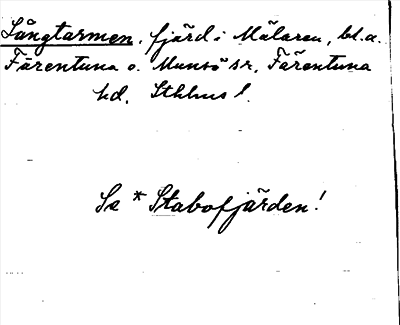 Långtarmen, fjärd i Mälaren, bl.a.
Färentuna o. Munsö sr, Färentuna
hd, Sthlms l.
Se *Stabofjärden!